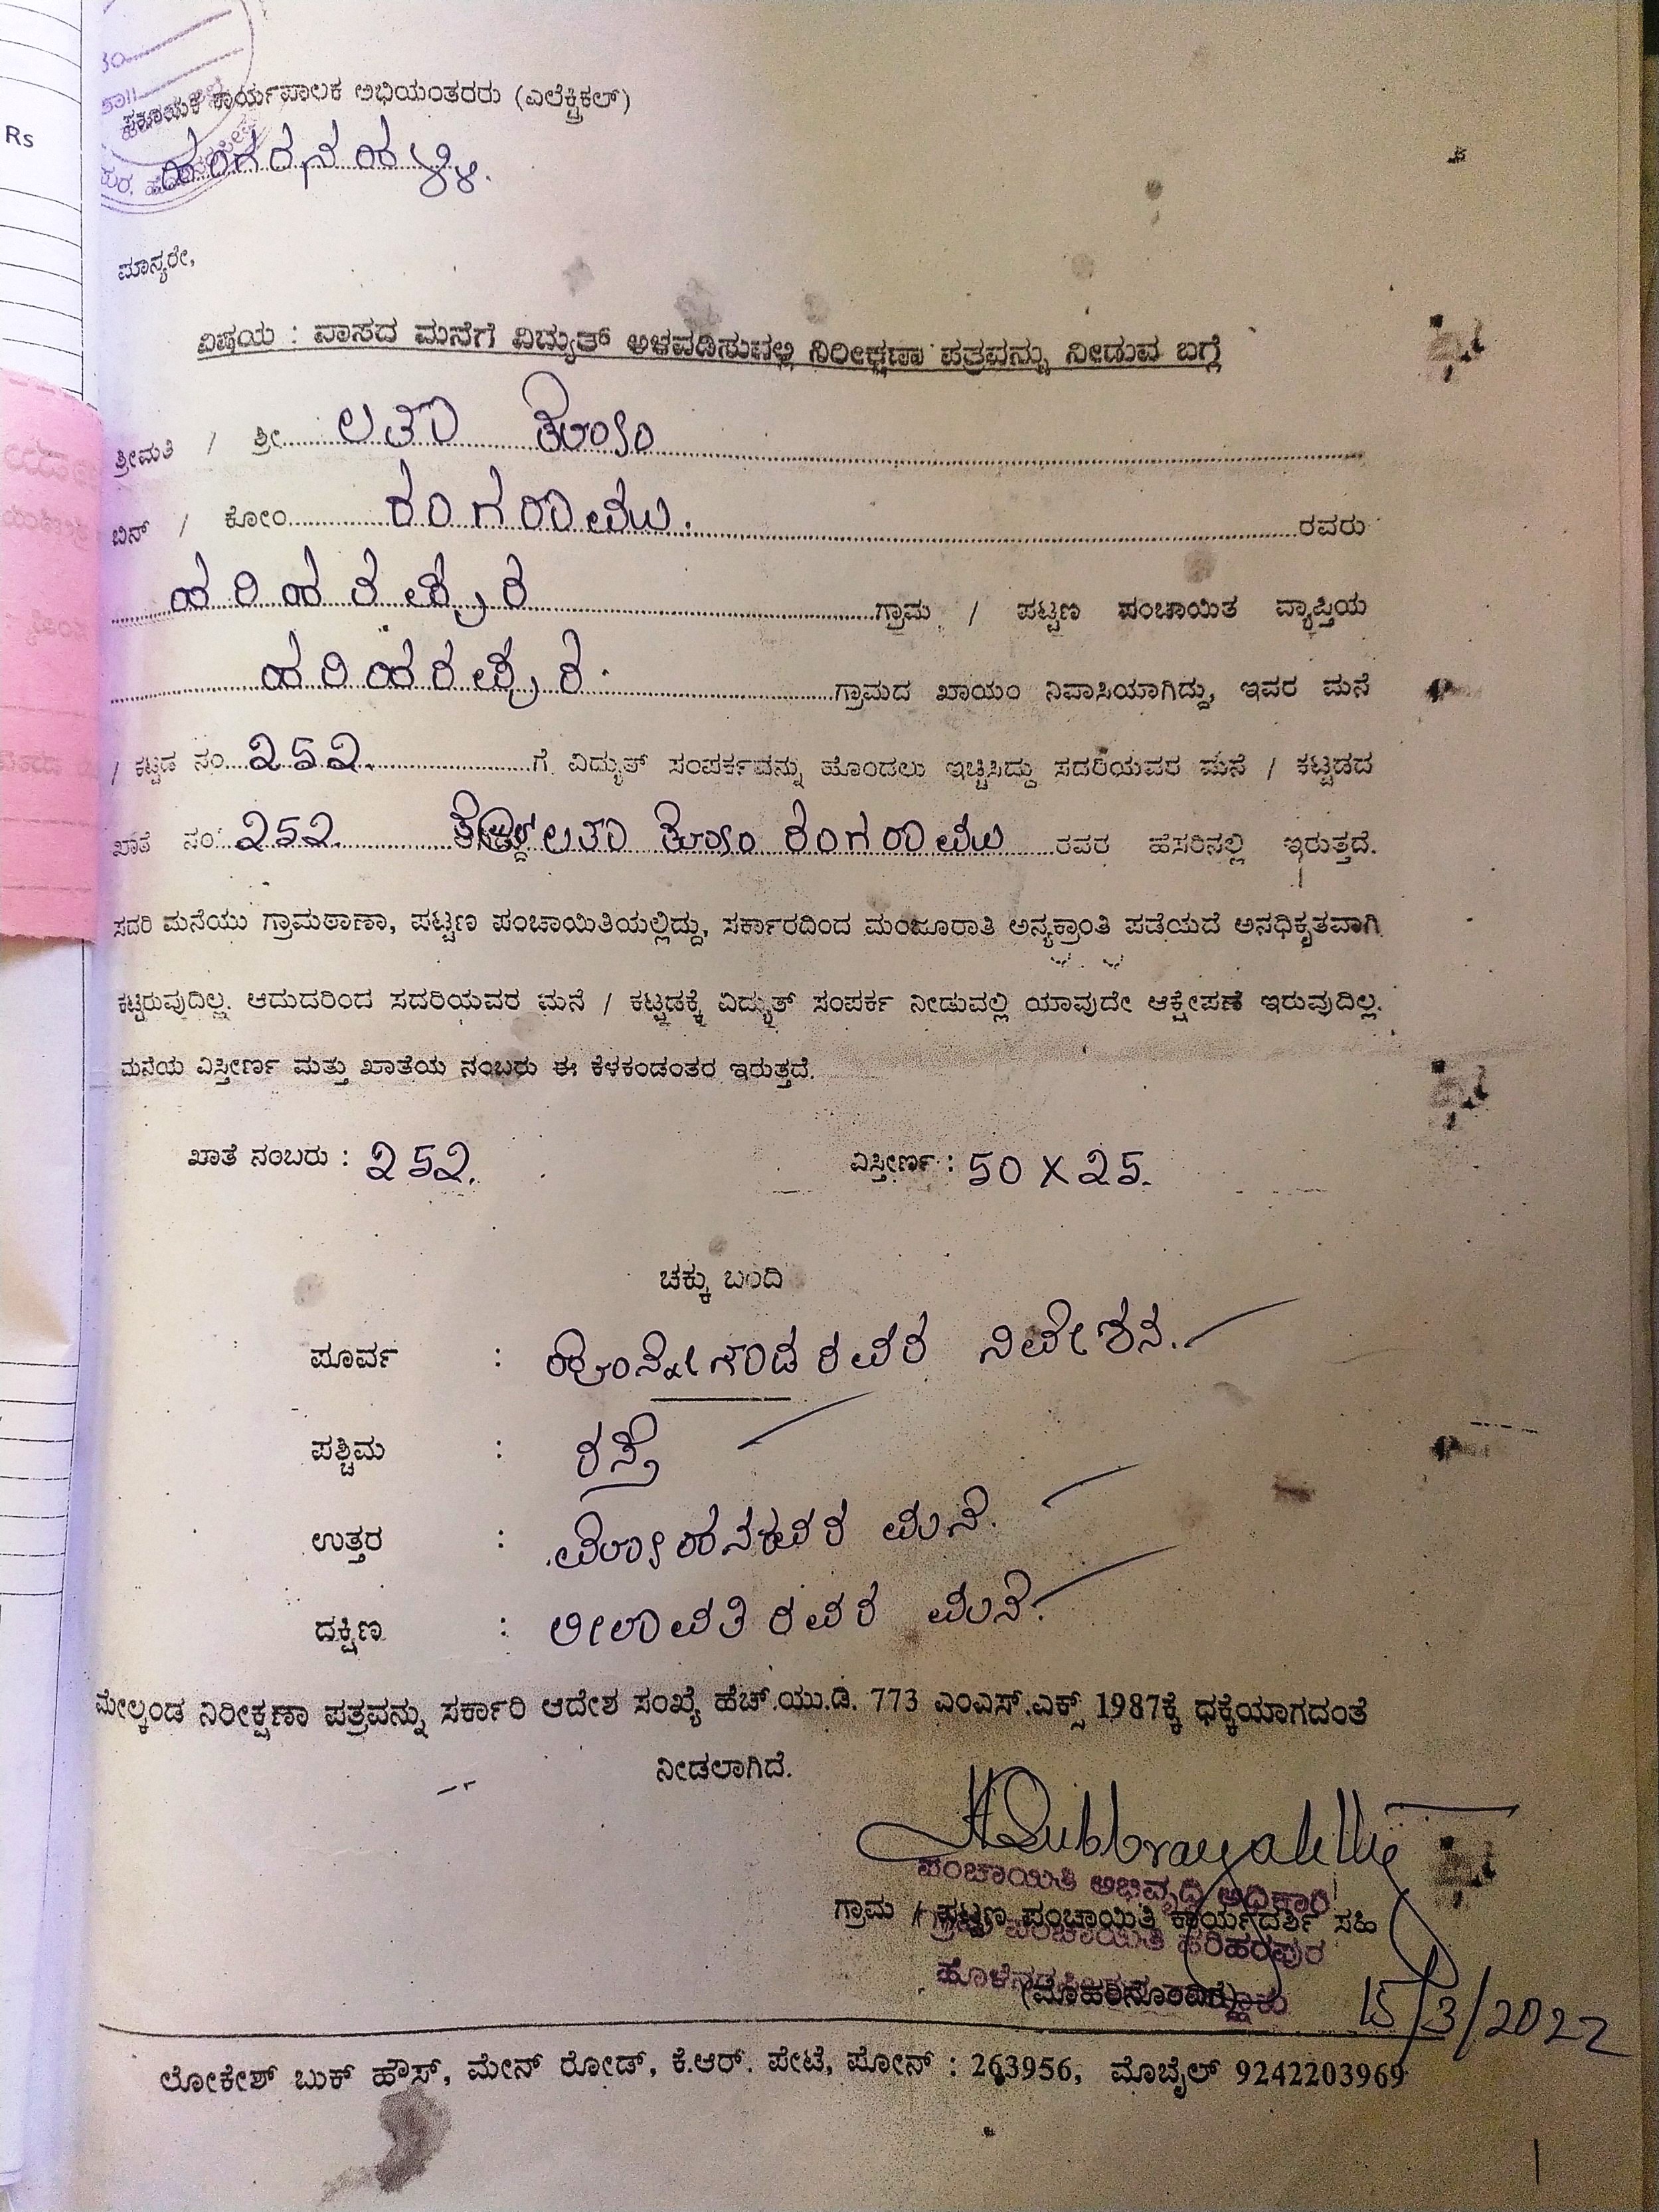 Rs
ಸಹಾಯಕ ಕಾರ್ಯಪಾಲಕ ಅಭಿಯಂತರರು (ಎಲೆಕ್ಟ್ರಿಕಲ್)
ಮಾನ್ಯರೇ,
ವಿಷಯ : ವಾಸದ ಮನೆಗೆ ವಿದ್ಯುತ್ ಅಳವಡಿಸುವಲ್ಲಿ ನಿರೀಕ್ಷಣಾ ಪತ್ರವನ್ನು ನೀಡುವ ಬಗ್ಗೆ
ಶ್ರೀಮತಿ / ಶ್ರೀ ಲತಾ ಕೋಂ
ಬಿನ್ / ಕೋಂ ರಂಗರಾಮು. ರವರು
ಹರಿಹರಪುರ ಗ್ರಾಮ / ಪಟ್ಟಣ ಪಂಚಾಯಿತ ವ್ಯಾಪ್ತಿಯ
ಹರಿಹರಪುರ. ಗ್ರಾಮದ ಖಾಯಂ ನಿವಾಸಿಯಾಗಿದ್ದು, ಇವರ ಮನೆ
/ ಕಟ್ಟಡ ನಂ. 252. ಗೆ ವಿದ್ಯುತ್ ಸಂಪರ್ಕವನ್ನು ಹೊಂದಲು ಇಚ್ಚಿಸಿದ್ದು ಸದರಿಯವರ ಮನೆ / ಕಟ್ಟಡದ
ಖಾತೆ ನಂ. 252. ಲತಾ ಕೋಂ ರಂಗರಾಮು ರವರ ಹೆಸರಿನಲ್ಲಿ ಇರುತ್ತದೆ.
ಸದರಿ ಮನೆಯು ಗ್ರಾಮಠಾಣಾ, ಪಟ್ಟಣ ಪಂಚಾಯಿತಿಯಲ್ಲಿದ್ದು, ಸರ್ಕಾರದಿಂದ ಮಂಜೂರಾತಿ ಅನ್ಯಕ್ರಾಂತಿ ಪಡೆಯದೆ ಅನಧಿಕೃತವಾಗಿ
ಕಟ್ಟಿರುವುದಿಲ್ಲ. ಆದುದರಿಂದ ಸದರಿಯವರ ಮನೆ / ಕಟ್ಟಡಕ್ಕೆ ವಿದ್ಯುತ್ ಸಂಪರ್ಕ ನೀಡುವಲ್ಲಿ ಯಾವುದೇ ಆಕ್ಷೇಪಣೆ ಇರುವುದಿಲ್ಲ.
ಮನೆಯ ವಿಸ್ತೀರ್ಣ ಮತ್ತು ಖಾತೆಯ ನಂಬರು ಈ ಕೆಳಕಂಡಂತರ ಇರುತ್ತದೆ.
ಖಾತೆ ನಂಬರು : 252. ವಿಸ್ತೀರ್ಣ : 50 X 25.
ಚಕ್ಕು ಬಂದಿ
ಪೂರ್ವ : ಹೊನ್ನೇಗೌಡ ರವರ ನಿವೇಶನ.
ಪಶ್ಚಿಮ : ರಸ್ತೆ
ಉತ್ತರ : ಮೋಹನರವರ ಮನೆ.
ದಕ್ಷಿಣ : ಲೀಲಾವತಿ ರವರ ಮನೆ.
ಮೇಲ್ಕಂಡ ನಿರೀಕ್ಷಣಾ ಪತ್ರವನ್ನು ಸರ್ಕಾರಿ ಆದೇಶ ಸಂಖ್ಯೆ ಹೆಚ್.ಯು.ಡಿ. 773 ಎಂಎಸ್.ಎಕ್ಸ್ 1987ಕ್ಕೆ ಧಕ್ಕೆಯಾಗದಂತೆ
ನೀಡಲಾಗಿದೆ.
ಪಂಚಾಯಿತಿ ಅಭಿವೃದ್ಧಿ ಅಧಿಕಾರಿ
ಗ್ರಾಮ / ಪಟ್ಟಣ ಪಂಚಾಯಿತಿ ಕಾರ್ಯದರ್ಶಿ ಸಹಿ
ಗ್ರಾಮ ಪಂಚಾಯಿತಿ ಹರಿಹರಪುರ
15/3/2022
ಲೋಕೇಶ್ ಬುಕ್ ಹೌಸ್, ಮೇನ್ ರೋಡ್, ಕೆ.ಆರ್. ಪೇಟೆ, ಪೋನ್ : 263956, ಮೊಬೈಲ್ 9242203969